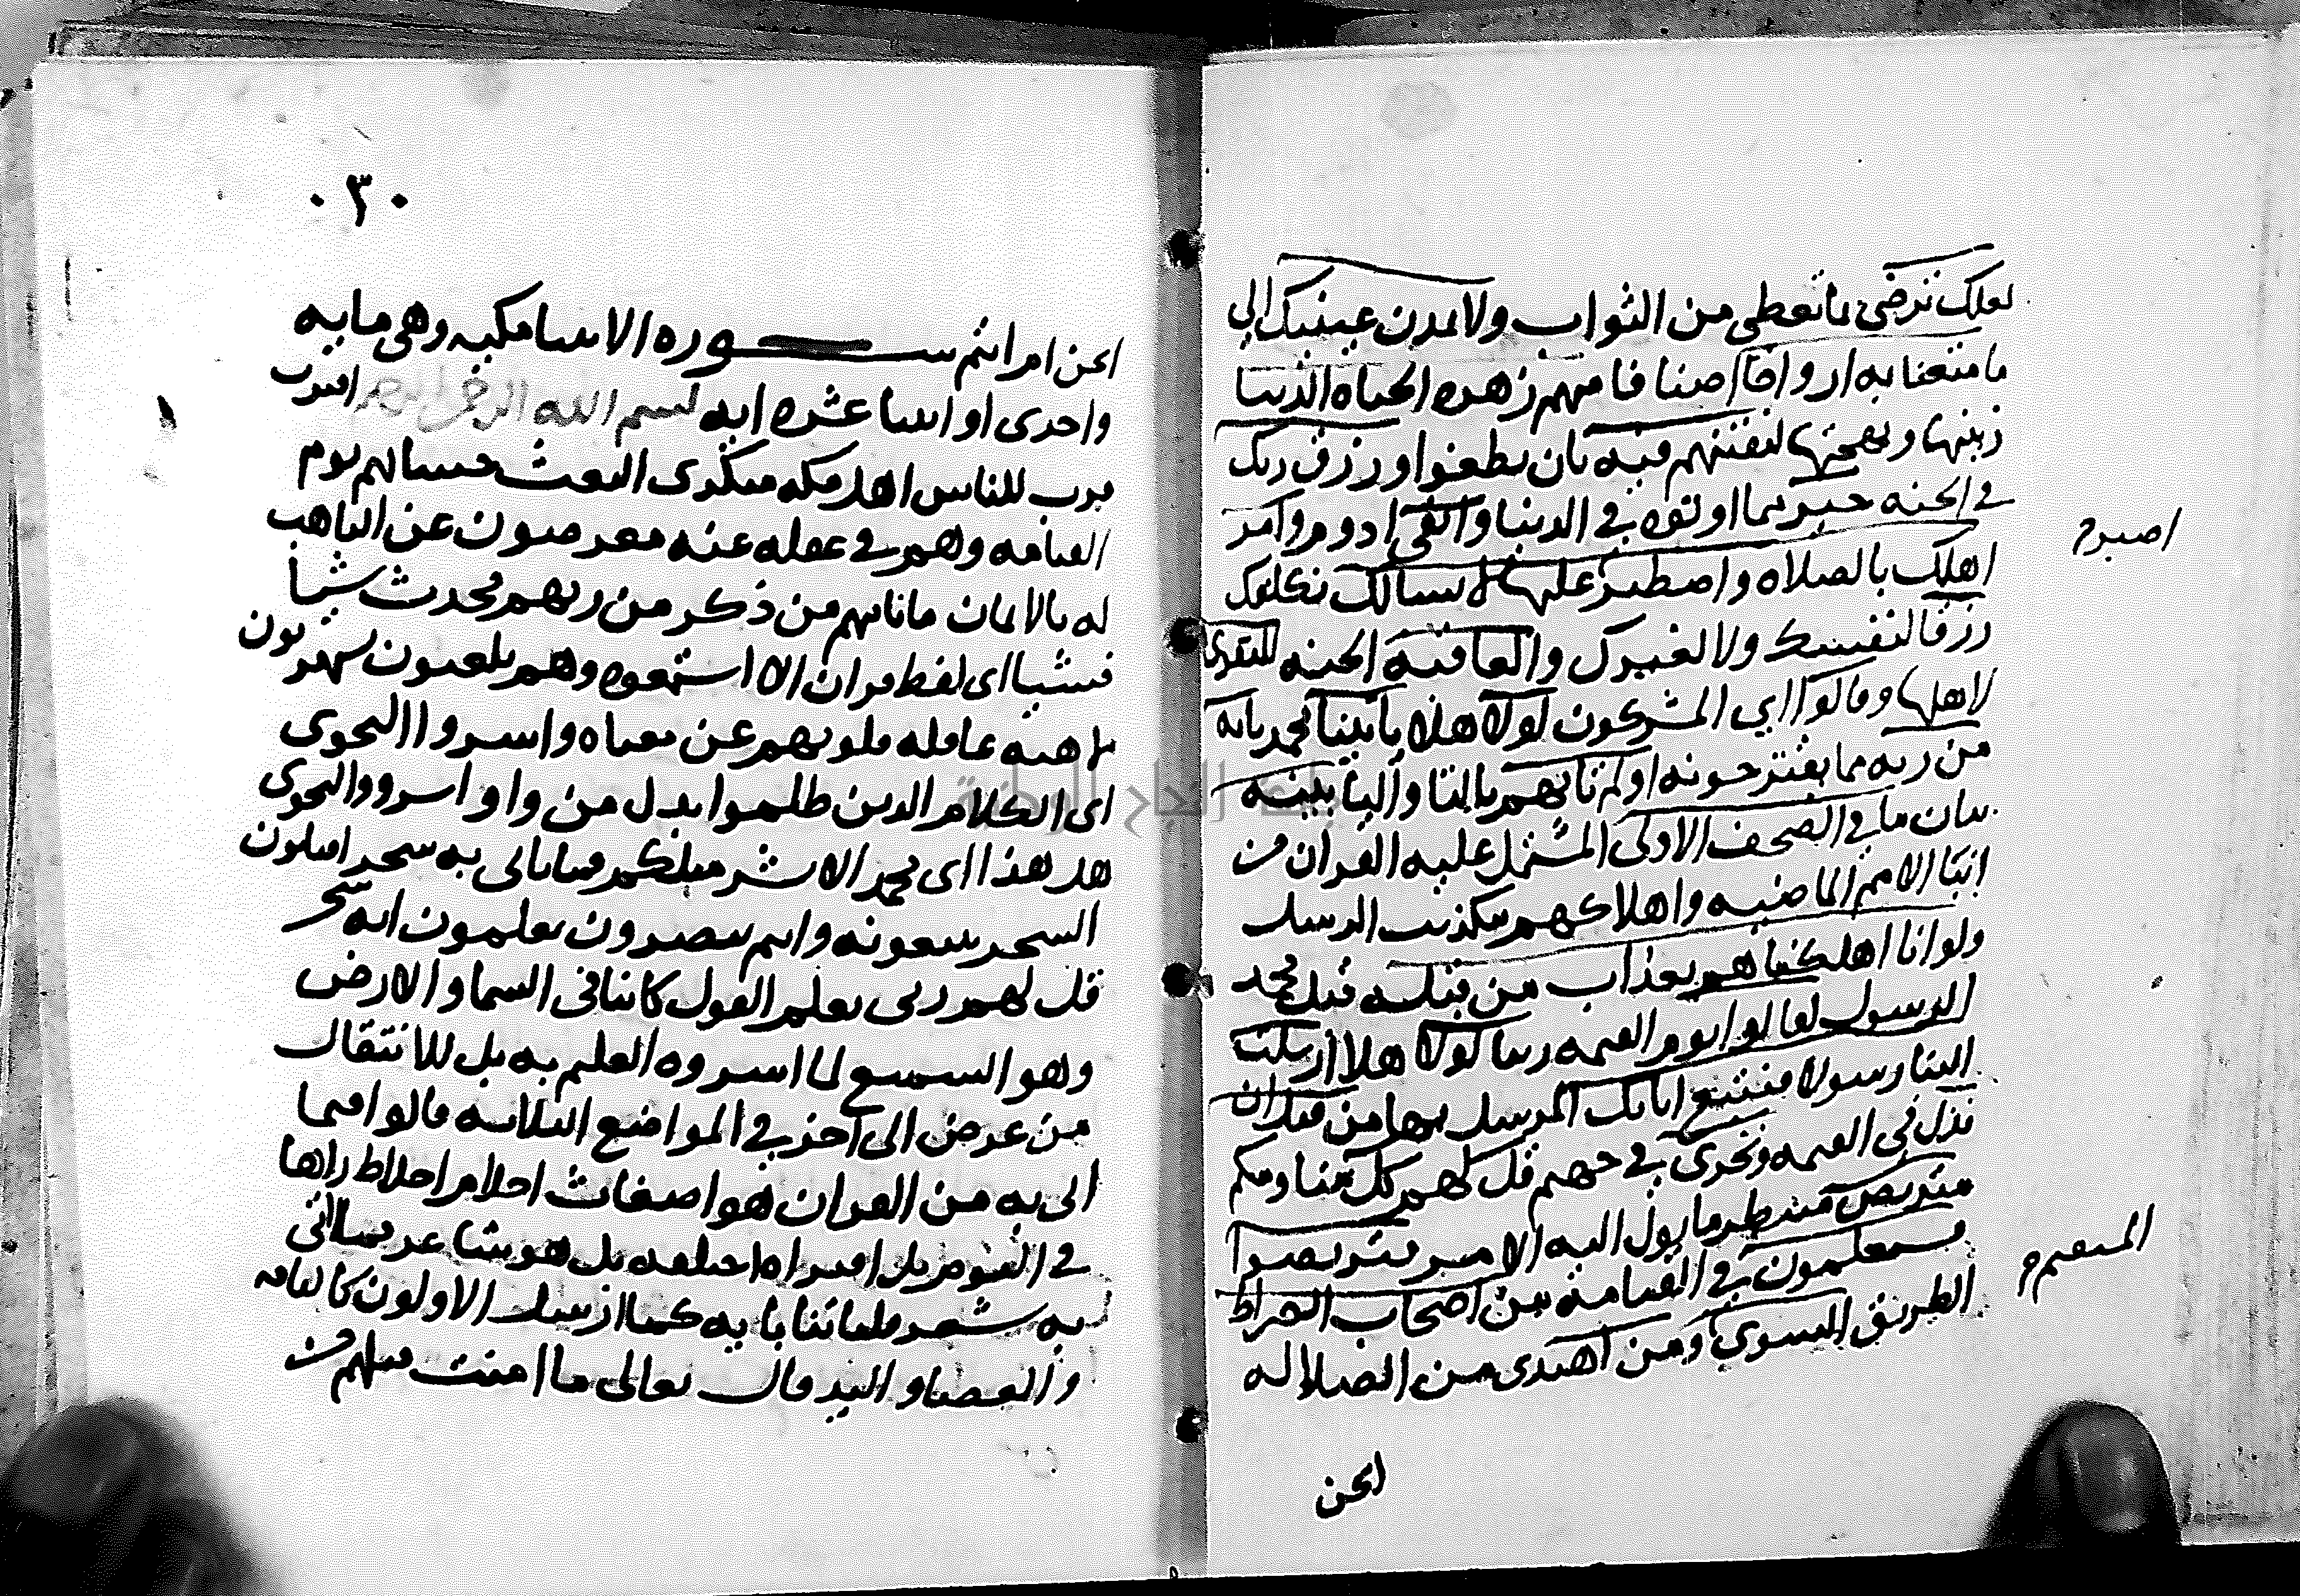 لعلك ترضى بما تعطى من الثواب ولا تمدن عينيك الى
ما متعنا به ازواجا اصنافا منهم زهره الحياه الدنيا
زينتها وبهجتها لنفتنهم فيه بان يطغوا ورزق ربك
في الجنه خير مما اوتوه في الدنيا وابقى ادوم وامر
اصبر
اهلك بالصلاه واصطبر عليها لا نسالك نكلفك
رزقا لنفسك ولا لغيرك والعاقبه الجنه للتقوى
لاهلها وقالوا اي المشركون لولا هلا ياتينا محمد بايه
من ربه مما يقترحونه اولم تاتهم بالتا واليا بينه
بيان ما في الصحف الاولى المشتمل عليه القران من
انبا الامم الماضيه واهلاكهم بتكذيب الرسل
ولو انا اهلكناهم بعذاب من قبله قبل محمد
الرسول لقالوا يوم القيمه ربنا لولا هلا ارسلت
الينا رسولا فنتبع اياتك المرسل بها من قبل ان
نذل في القيمه ونخزى في جهنم قل لهم كل منا ومنكم
متربص منتظر ما يول اليه الامر فتربصوا
فستعلمون في القيامه من اصحاب الصراط
المستقيم
الطريق السوي ومن اهتدى من الضلاله
انحن
٣٠
انحن ام انتم ســوره الانبيا مكيه وهي مايه
واحدى او اثنتا عشره ايه بسم الله الرحمن الرحيم اقترب
قرب للناس اهل مكه منكرى البعث حسابهم يوم
القيامه وهم في غفله عنه معرضون عن التاهب
له بالايمان ما ياتيهم من ذكر من ربهم محدث شيا
فشيا اى لفظ قران الا استمعوه وهم يلعبون يستهزون
لاهيه غافله قلوبهم عن معناه واسروا النجوى
اى الكلام الدين ظلموا بدل من واو اسروو النجوى
هل هذا اى محمد الا بشر مثلكم فما ياتى به سحر افتاتون
السحر تتبعونه وانتم تبصرون تعلمون انه سحر
قل لهم ربى يعلم القول كاينا فى السما والارض
وهو السميع لما اسروه العليم به بل للانتقال
من غرض الى اخر في المواضع الثلاثه قالوا فيما
اتى به من القران هو اضغاث احلام اخلاط راها
في النوم بل افتراه اختلقه بل هو شاعر فما اتى
به شعر فلياتنا بايه كما ارسل الاولون كالناقه
والعصا واليد قال تعالى ما امنت قبلهم من